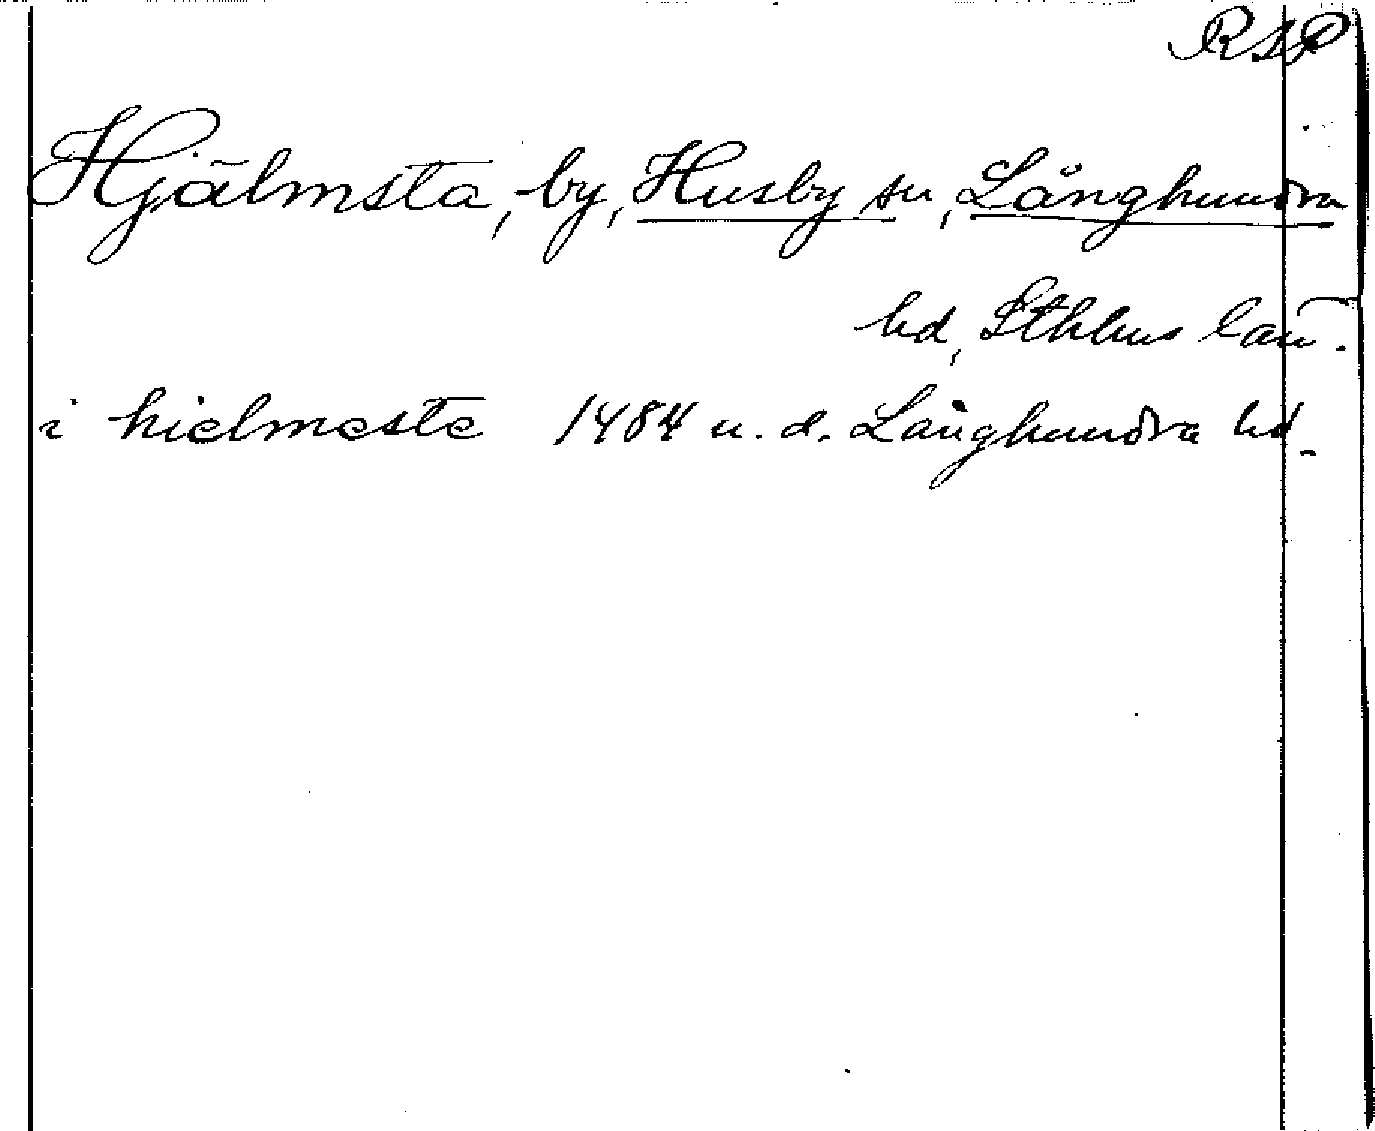 RAP
Hjälmsta, by, Husby sn, Långhundra
hd, Sthlms län.
i hielmesta 1484 u. d. Långhundra hd.